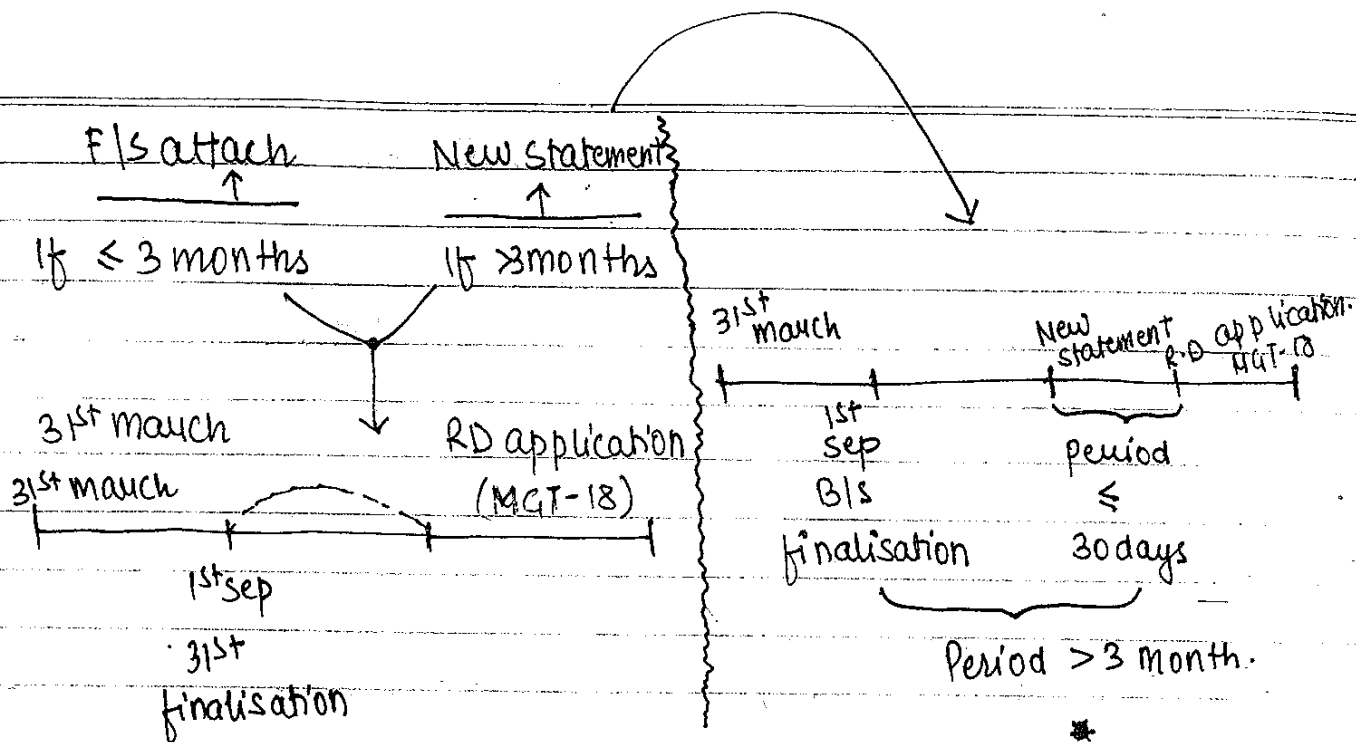 F/S attach
New statement
If ≤ 3 months
If >3months
31st march
RD application
31st march
(MGT-18)
1st sep
31st
finalisation
31st march
New statement
R.D application.
MGT-18
1st
sep
B/S
finalisation
period
≤
30days
Period > 3 month.